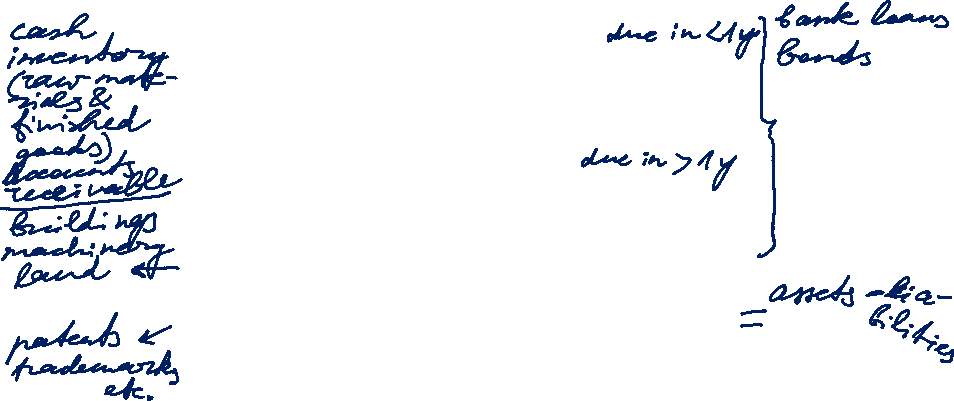 cash
inventory
(raw mate-
rials &
finished
goods)
Accounts
receivable
buildings
machinery
land ←
patents ↙
trademarks
etc.
due in < 1y
bank loans
bonds
due in > 1y
= assets - lia-
bilities